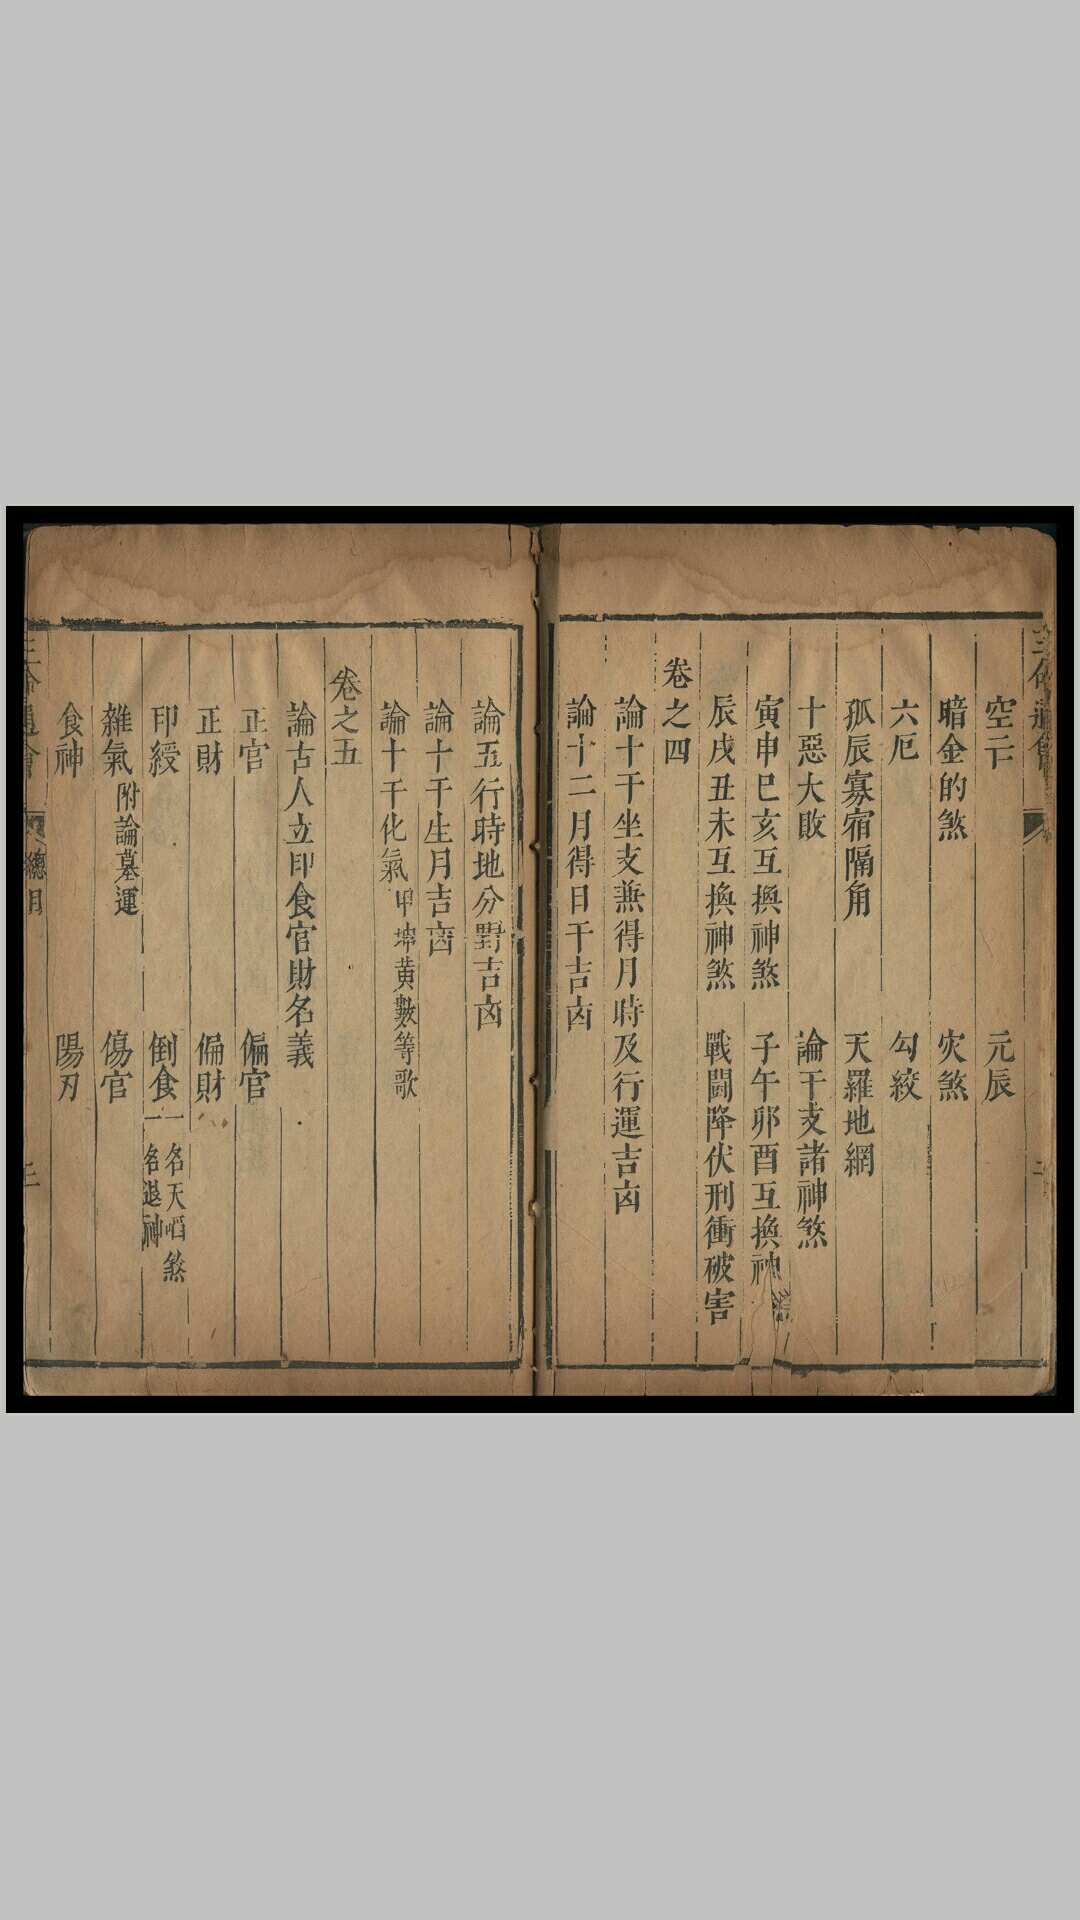 三命通會
空亡 元辰
暗金的煞 灾煞
六厄 勾絞
孤辰寡宿隔角 天羅地網
十惡大敗 論干支諸神煞
寅申巳亥互換神煞 子午卯酉互換神煞
辰戌丑未互換神煞 戰鬪降伏刑衝破害
卷之四
論十干坐支兼得月時及行運吉凶
論十二月得日干吉凶
論五行時地分野吉凶
論十干生月吉凶
論十干化氣 甲坤黄數等歌
卷之五
論古人立印食官財名義
正官 偏官
正財 偏財
印綬 倒食 一名天㗖煞 一名退神
雜氣 附論墓運 傷官
食神 陽刃
三命通會 總目 二